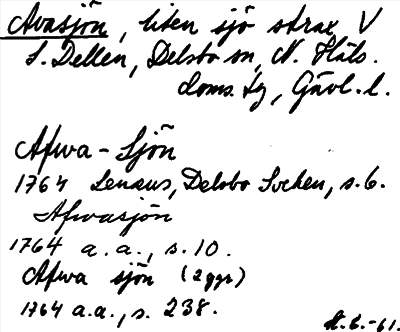 Avasjön, liten sjö strax V
S. Dellen, Delsbo sn, N. Häls.
doms. tg, Gävl. l.
Afwa-Sjön
1764 Lenæus, Delsbo Sochen, s. 6.
Afwasjön
1764 a.a., s. 10.
Afwa sjön (2 ggr)
1764 a.a., s. 238.
-61.